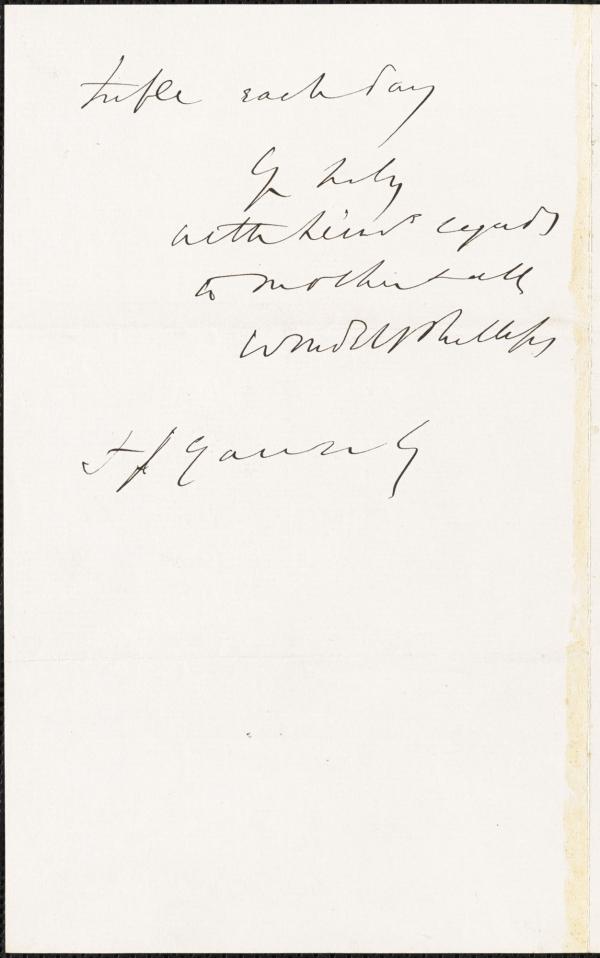 trifle each day
Yr truly
with kind regards
to mother & all
Wendell Phillips
F J Garrison